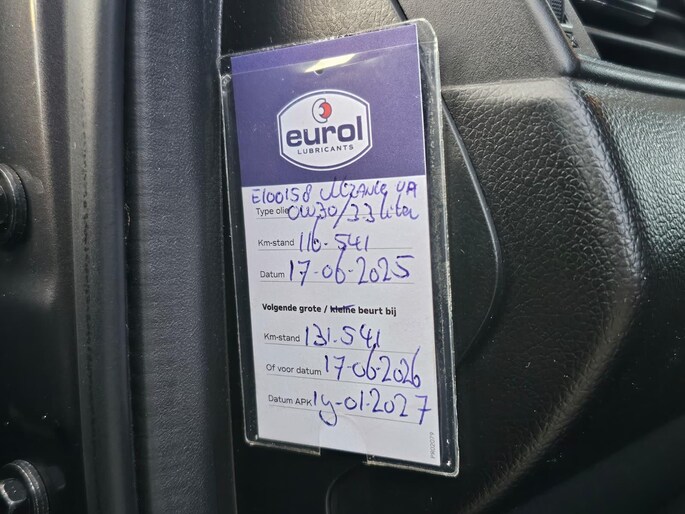 eurol
LUBRICANTS
E100158
Type olie 0W30/3.3 liter
Km-stand 116-541
Datum 17-06-2025
Volgende grote / kleine beurt bij
Km-stand 131-541
Of voor datum 17-06-2026
Datum APK 19-01-2027